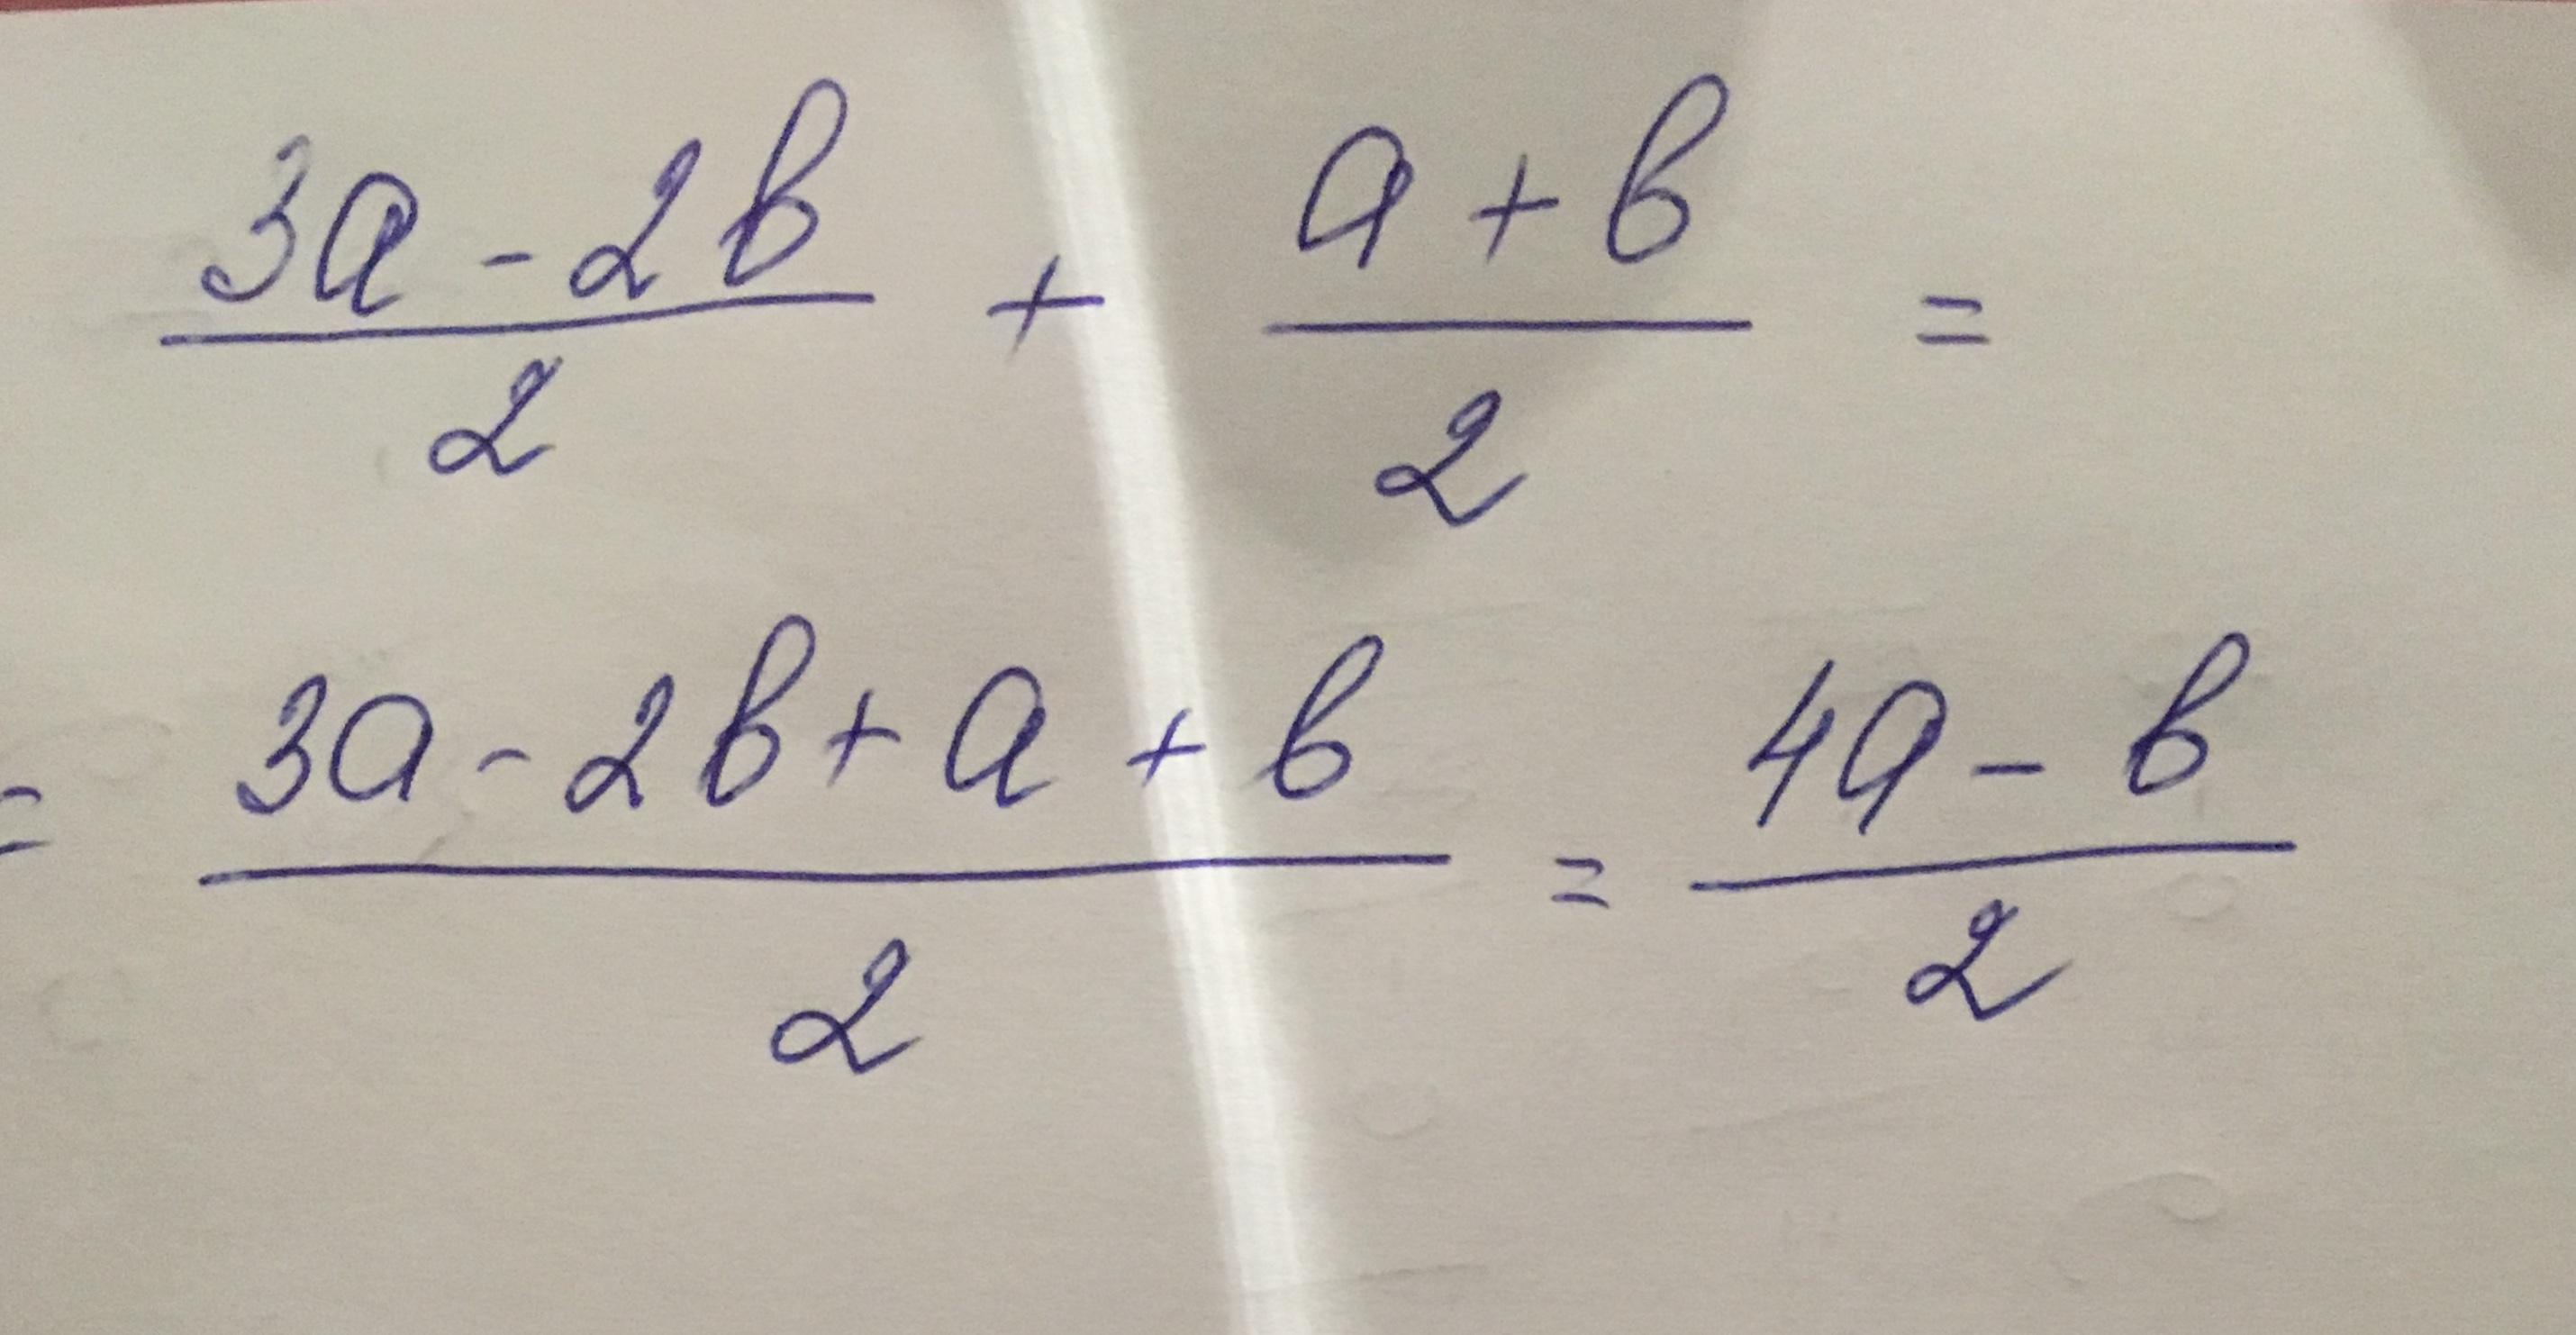 (3a - 2b)/2 + (a + b)/2 =
= (3a - 2b + a + b)/2 = (4a - b)/2